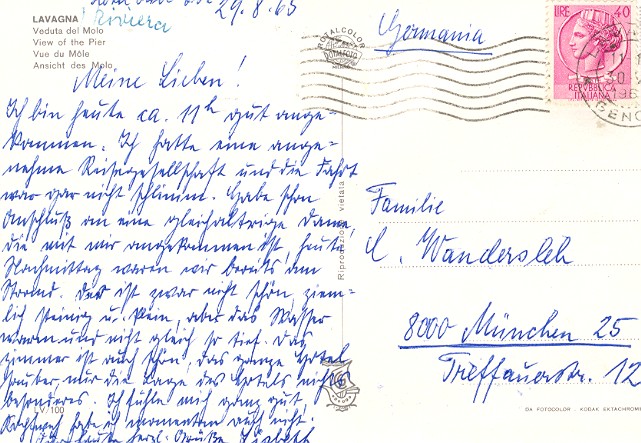 29.8.65
LAVAGNA Riviera
Veduta del Molo
View of the Pier
Vue du Môle
Ansicht des Molo
Meine Lieben!
Ich bin heute ca. 11h gut ange-
kommen. Ich hatte eine ange-
nehme Reisegesellschaft und die Fahrt
war gar nicht schlimm. Habe schon
Anschluß an eine gleichaltrige Dame,
die mit mir angekommen ist, heute
Nachmittag waren wir bereits am
Strand. Der ist zwar nicht schön, ziem-
lich steinig u. klein, aber das Wasser
warm und nicht gleich so tief. Das
Zimmer ist auch schön, das ganze Hotel
sauber, nur die Lage des Hotels nichts
besonderes. Ich fühle mich ganz gut
habe ich momentan auch nicht.
Grüße
LV/100
Riproduzione vietata
ROTALCOLOR
ROTALFOTO
Germania
LIRE 40
REPVBBLICA
ITALIANA
GENO
Familie
Wandersleb
8000 München 25
Treffauerstr. 12
DA FOTOCOLOR - KODAK EKTACHROME